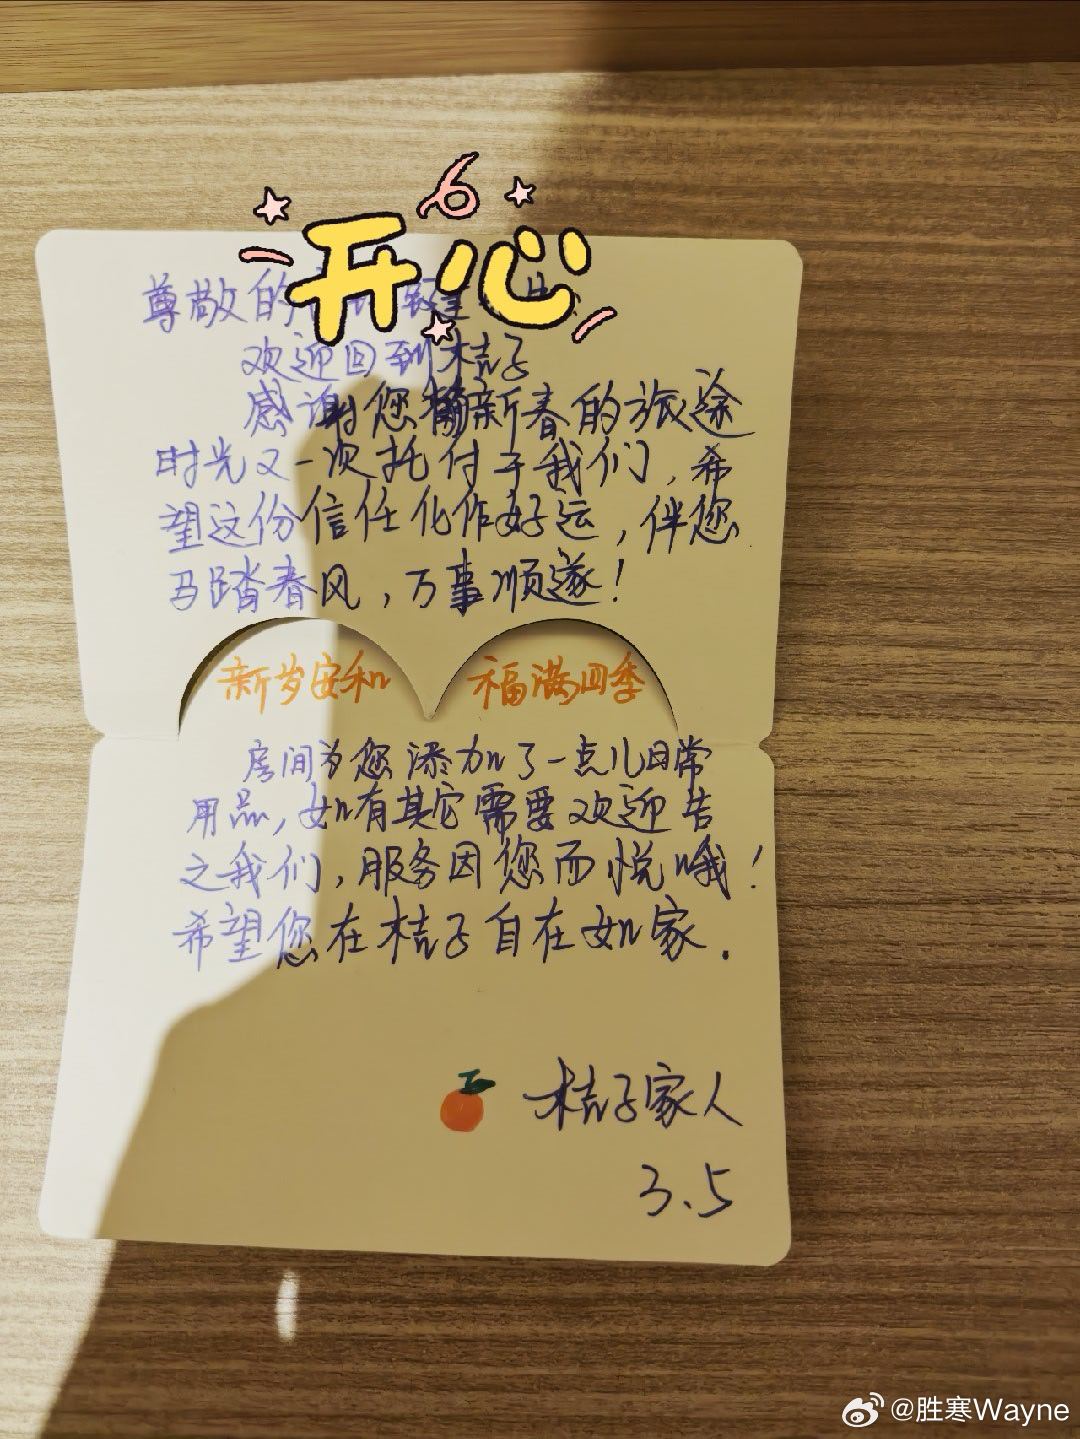 开心
尊敬的
欢迎回到桔子
感谢您将新春的旅途
时光又一次托付于我们，希
望这份信任化作好运，伴您
马踏春风，万事顺遂！
新岁安和 福满四季
房间为您添加了一点儿日常
用品，如有其它需要欢迎告
之我们，服务因您而悦哦！
希望您在桔子自在如家．
桔子家人
3.5
@胜寒Wayne